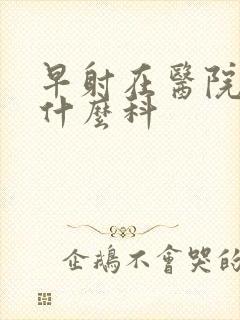 早射在醫院
什麼科
企鵝不會哭的